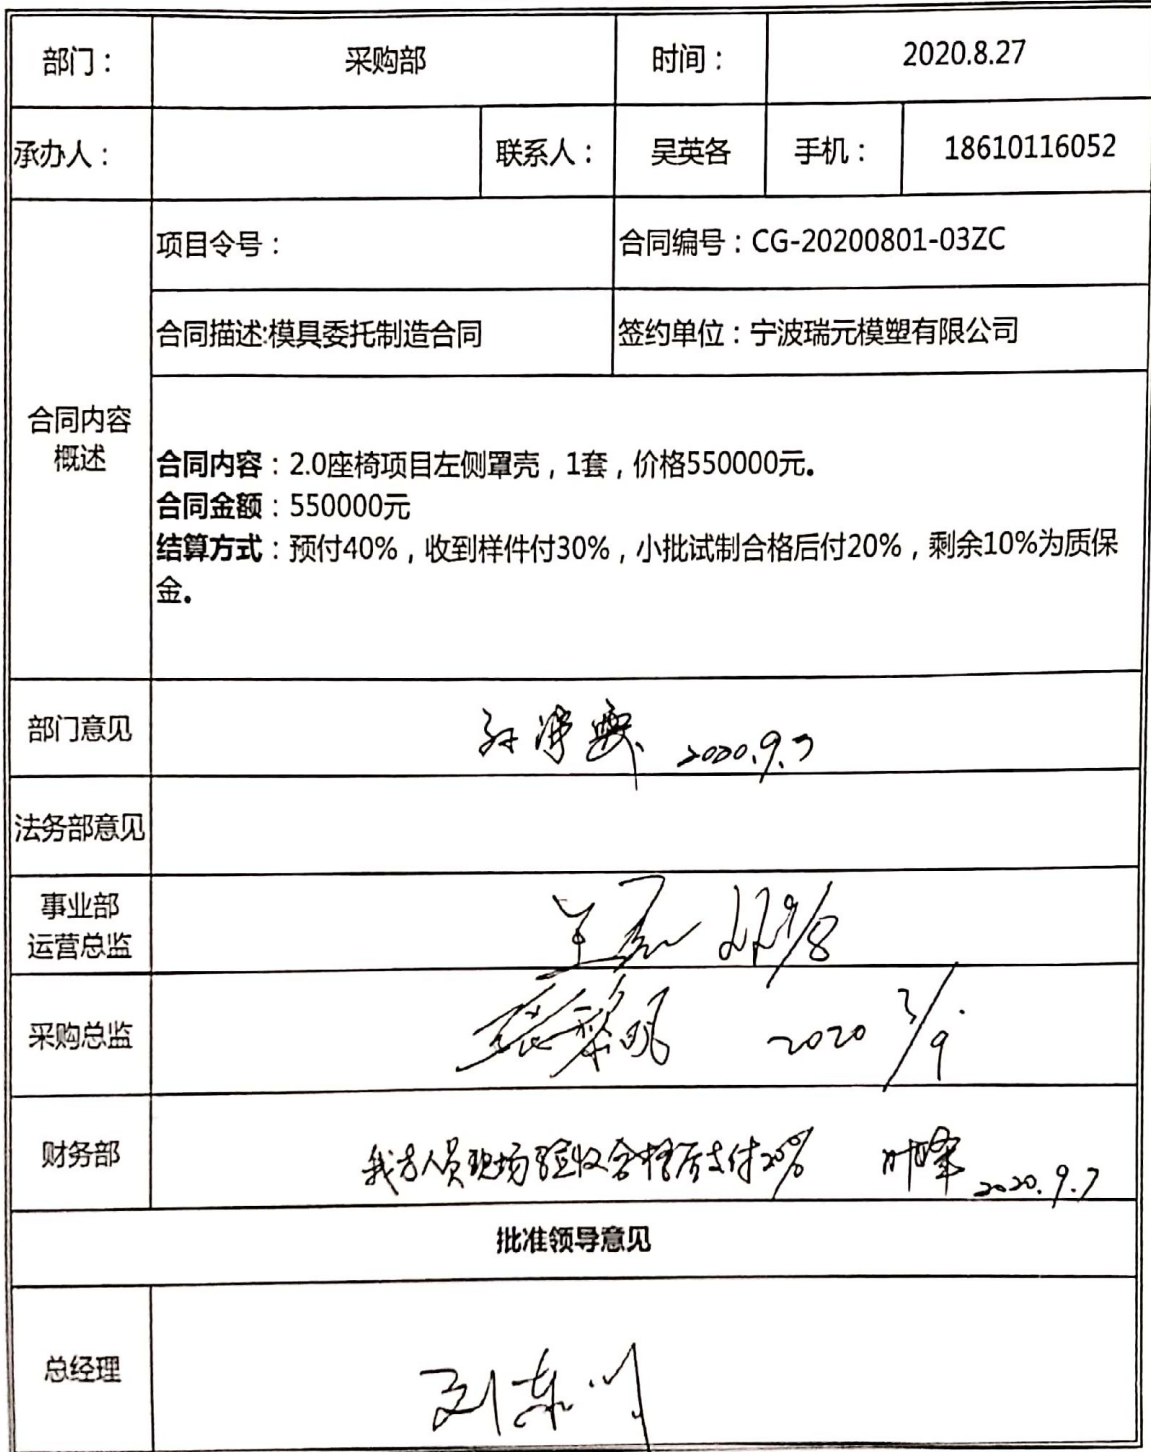 部门： 采购部 时间： 2020.8.27
承办人： 联系人： 吴英各 手机： 18610116052
项目令号： 合同编号：CG-20200801-03ZC
合同描述:模具委托制造合同 签约单位：宁波瑞元模塑有限公司
合同内容
概述
合同内容：2.0座椅项目左侧罩壳，1套，价格550000元。
合同金额：550000元
结算方式：预付40%，收到样件付30%，小批试制合格后付20%，剩余10%为质保
金。
部门意见 2020.9.7
法务部意见
事业部
运营总监
采购总监 2020
财务部 我方人员现场验收合格后支付20% 叶峰 2020.9.7
批准领导意见
总经理 刘东川